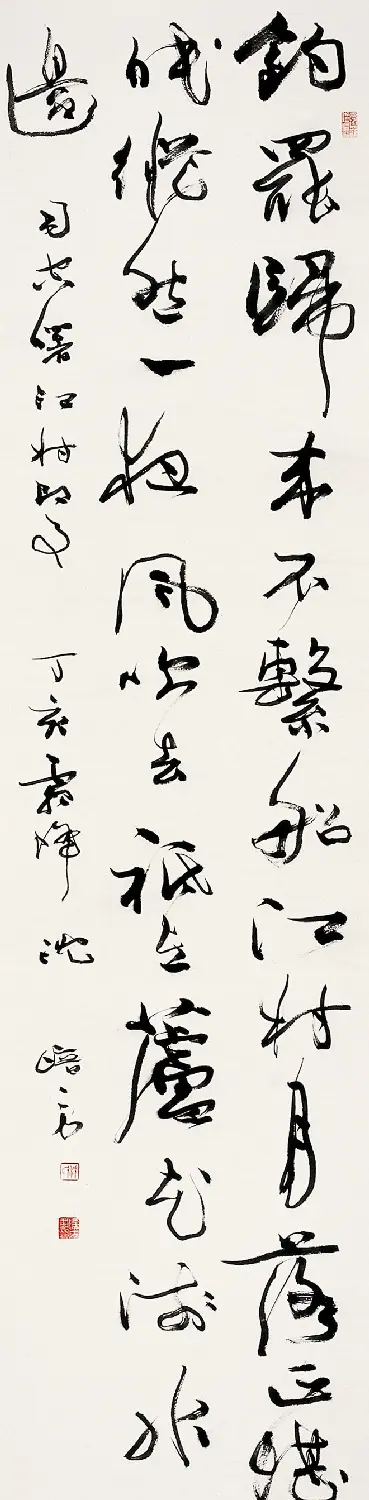 釣罷歸來不繫船江村月落正堪
眠縱然一夜風吹去祗在蘆花淺水
邊 司空曙江村即事 丁亥霜降 沈培方